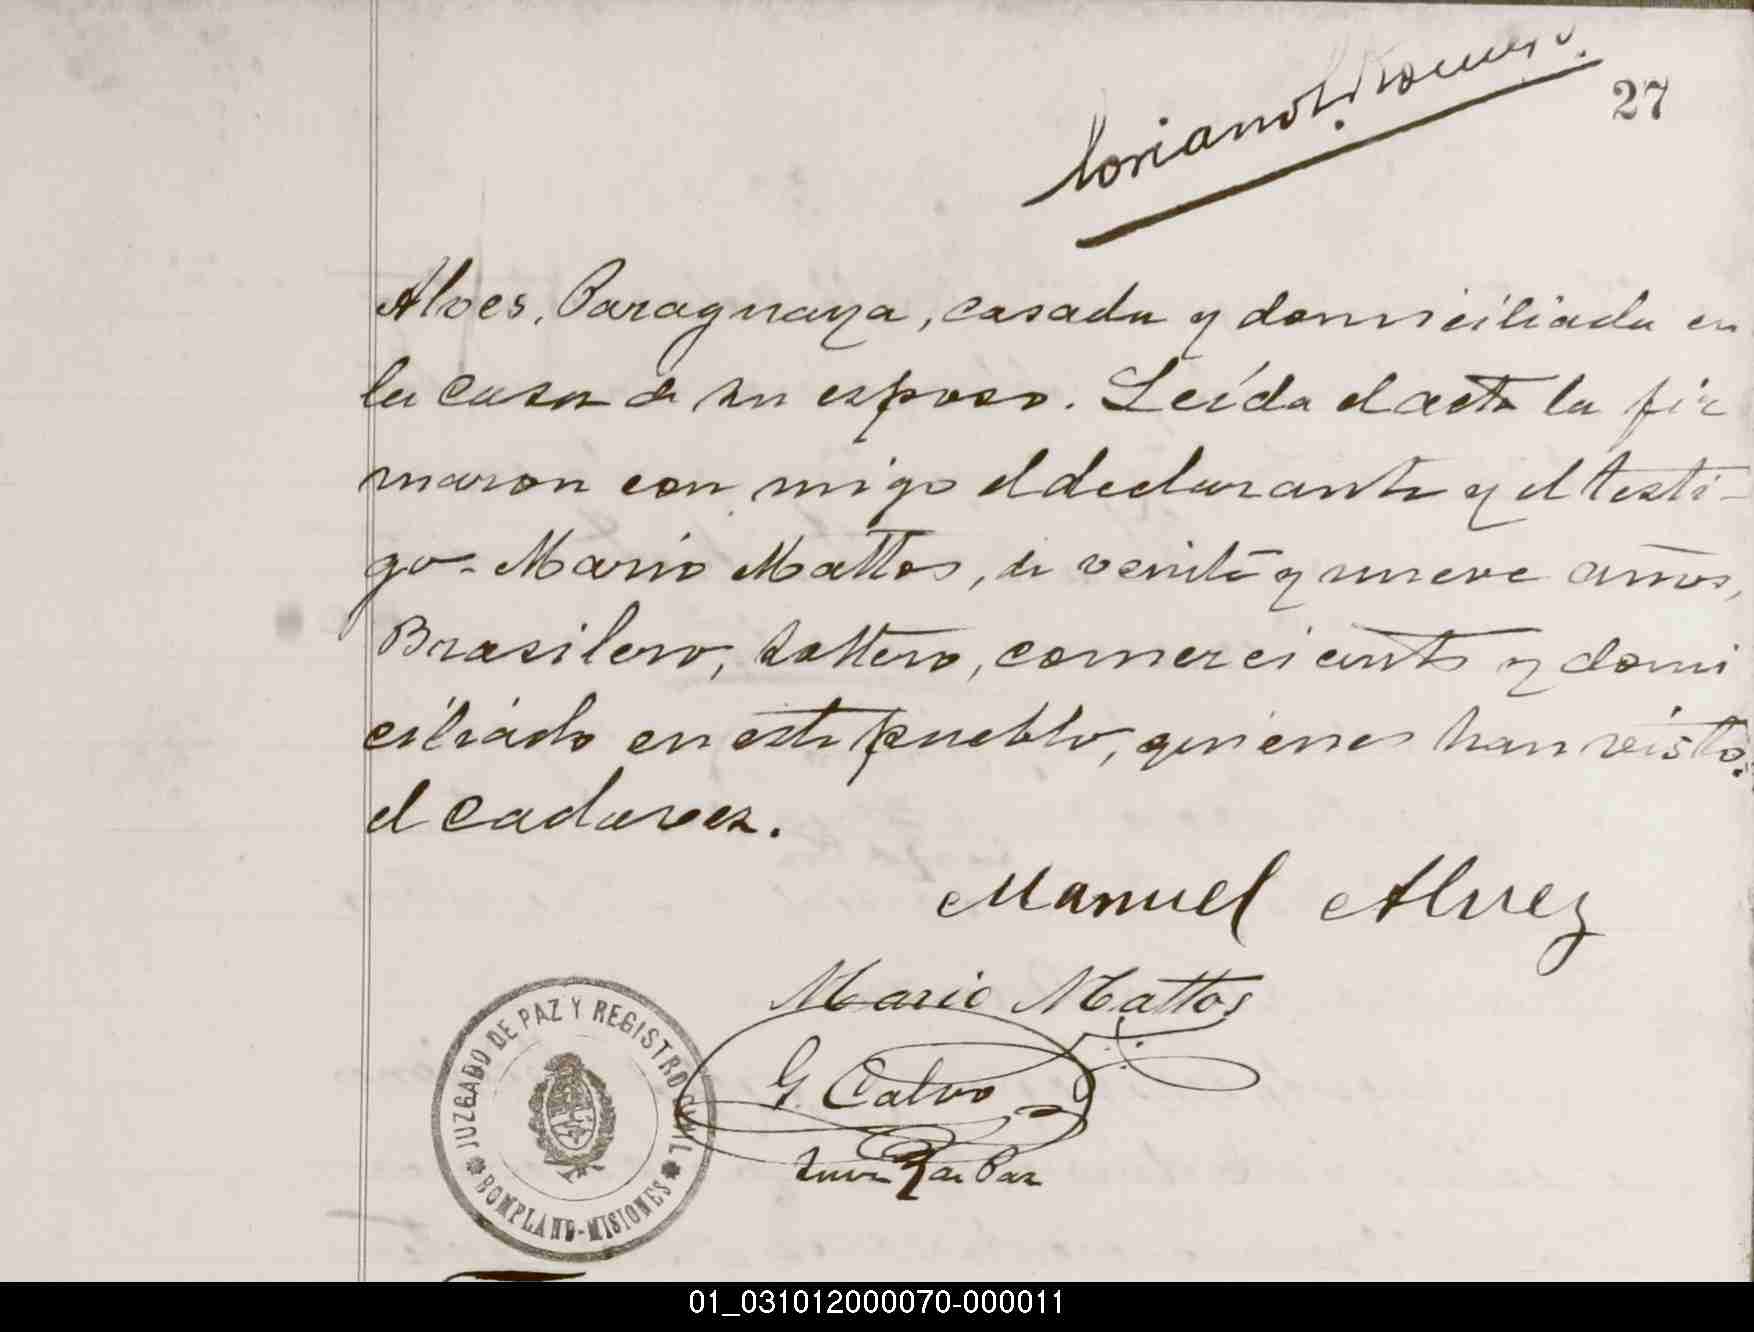 Coriano L. Romero.
27
Alves, Paraguaya, casada y domiciliada en
la casa de su esposo. Leída el acta la fir
maron con migo el declarante y el testi-
go- Mario Mattos, de veinte y nueve años,
Brasilero, soltero, comerciante y domi
ciliado en este pueblo, quienes han visto
el cadaver.
Manuel Alvez
Mario Mattos
G. Calvo
Juez de Paz
JUZGADO DE PAZ Y REGISTRO CIVIL
BOMPLAND-MISIONES
01_031012000070-000011